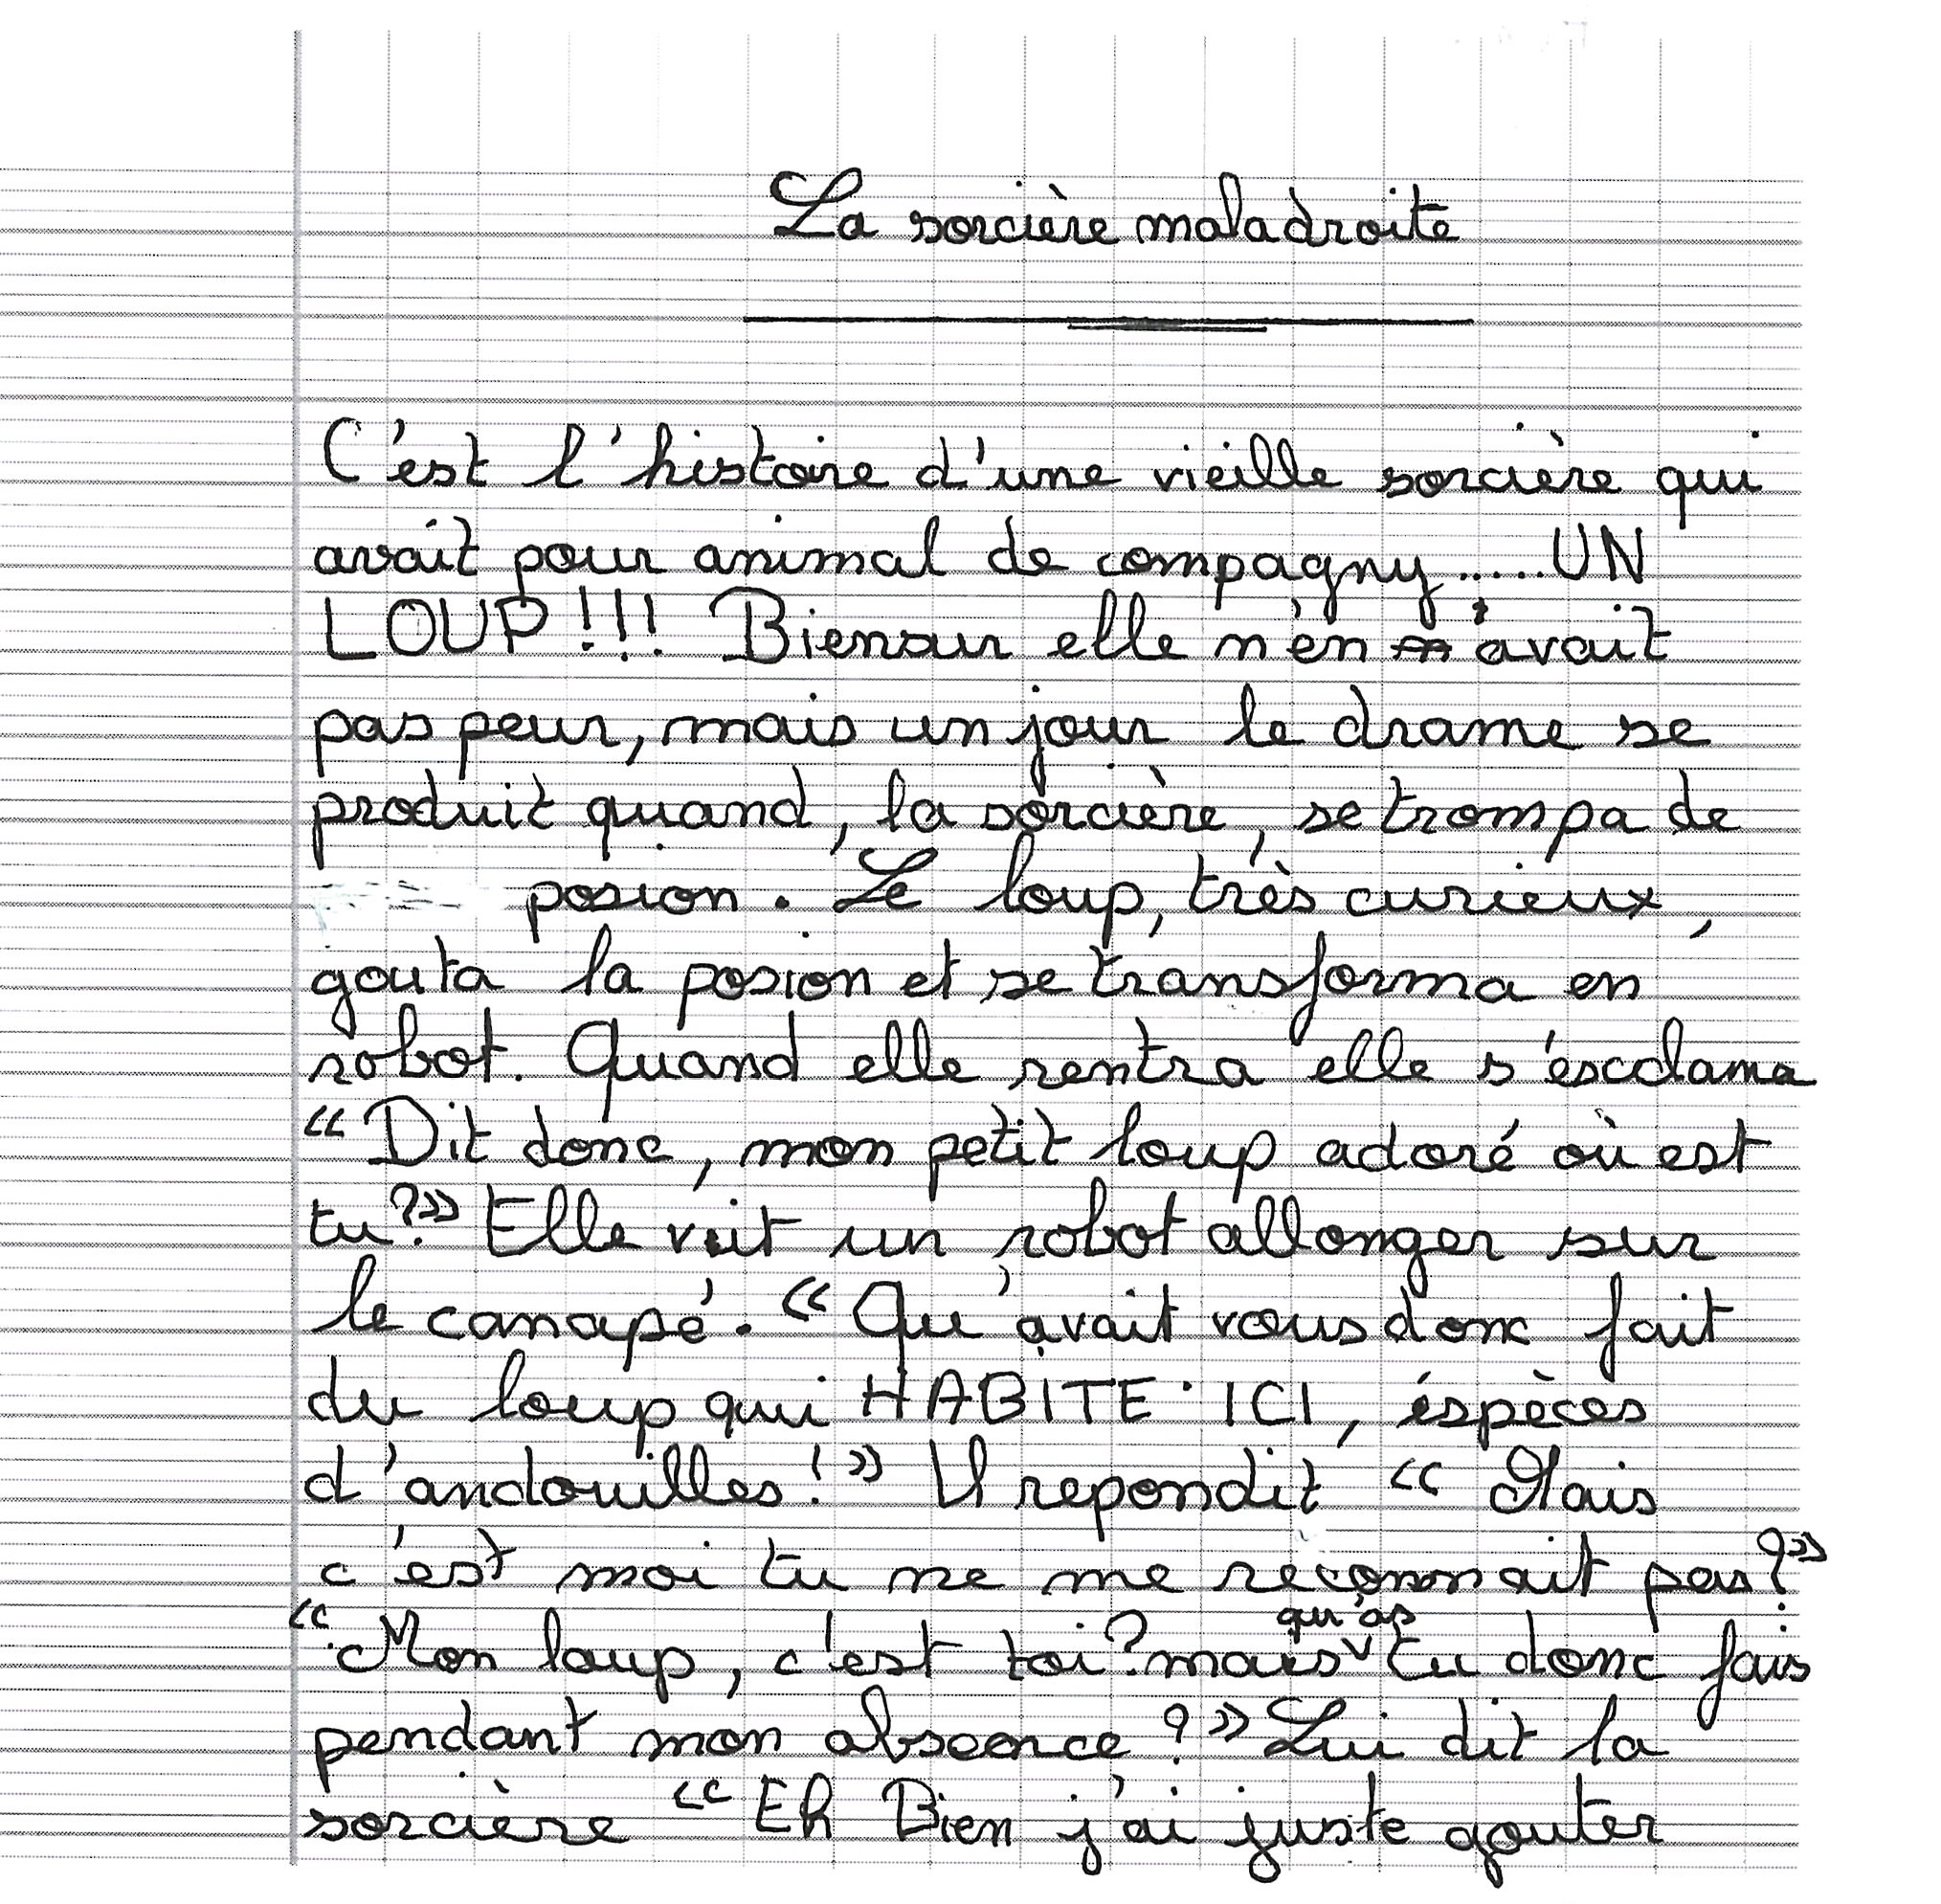 La sorcière maladroite
C'est l'histoire d'une vieille sorcière qui
avait pour animal de compagny.....UN
LOUP!!! Biensur elle n'en avait
pas peur, mais un jour le drame se
produit quand, la sorcière, se trompa de
posion. Le loup, très curieux,
gouta la posion et se transforma en
robot. Quand elle rentra elle s'esclama
“Dit donc, mon petit loup adoré où est
tu?» Elle vit un robot allonger sur
le canapé. “Qu'avait vous donc fait
du loup qui HABITE ICI, éspèces
d'andouilles!» Il repondit “Mais
c'est moi tu ne me reconnait pas?»
“Mon loup, c'est toi? mais qu'as tu donc fais
pendant mon absence?» Lui dit la
sorcière “Eh Bien j'ai juste gouter